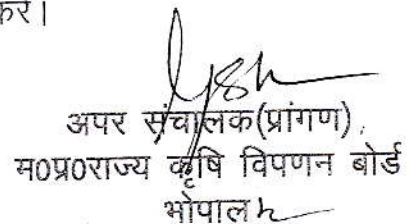 कर।
अपर संचालक(प्रांगण)
म0प्र0राज्य कृषि विपणन बोर्ड
भोपाल